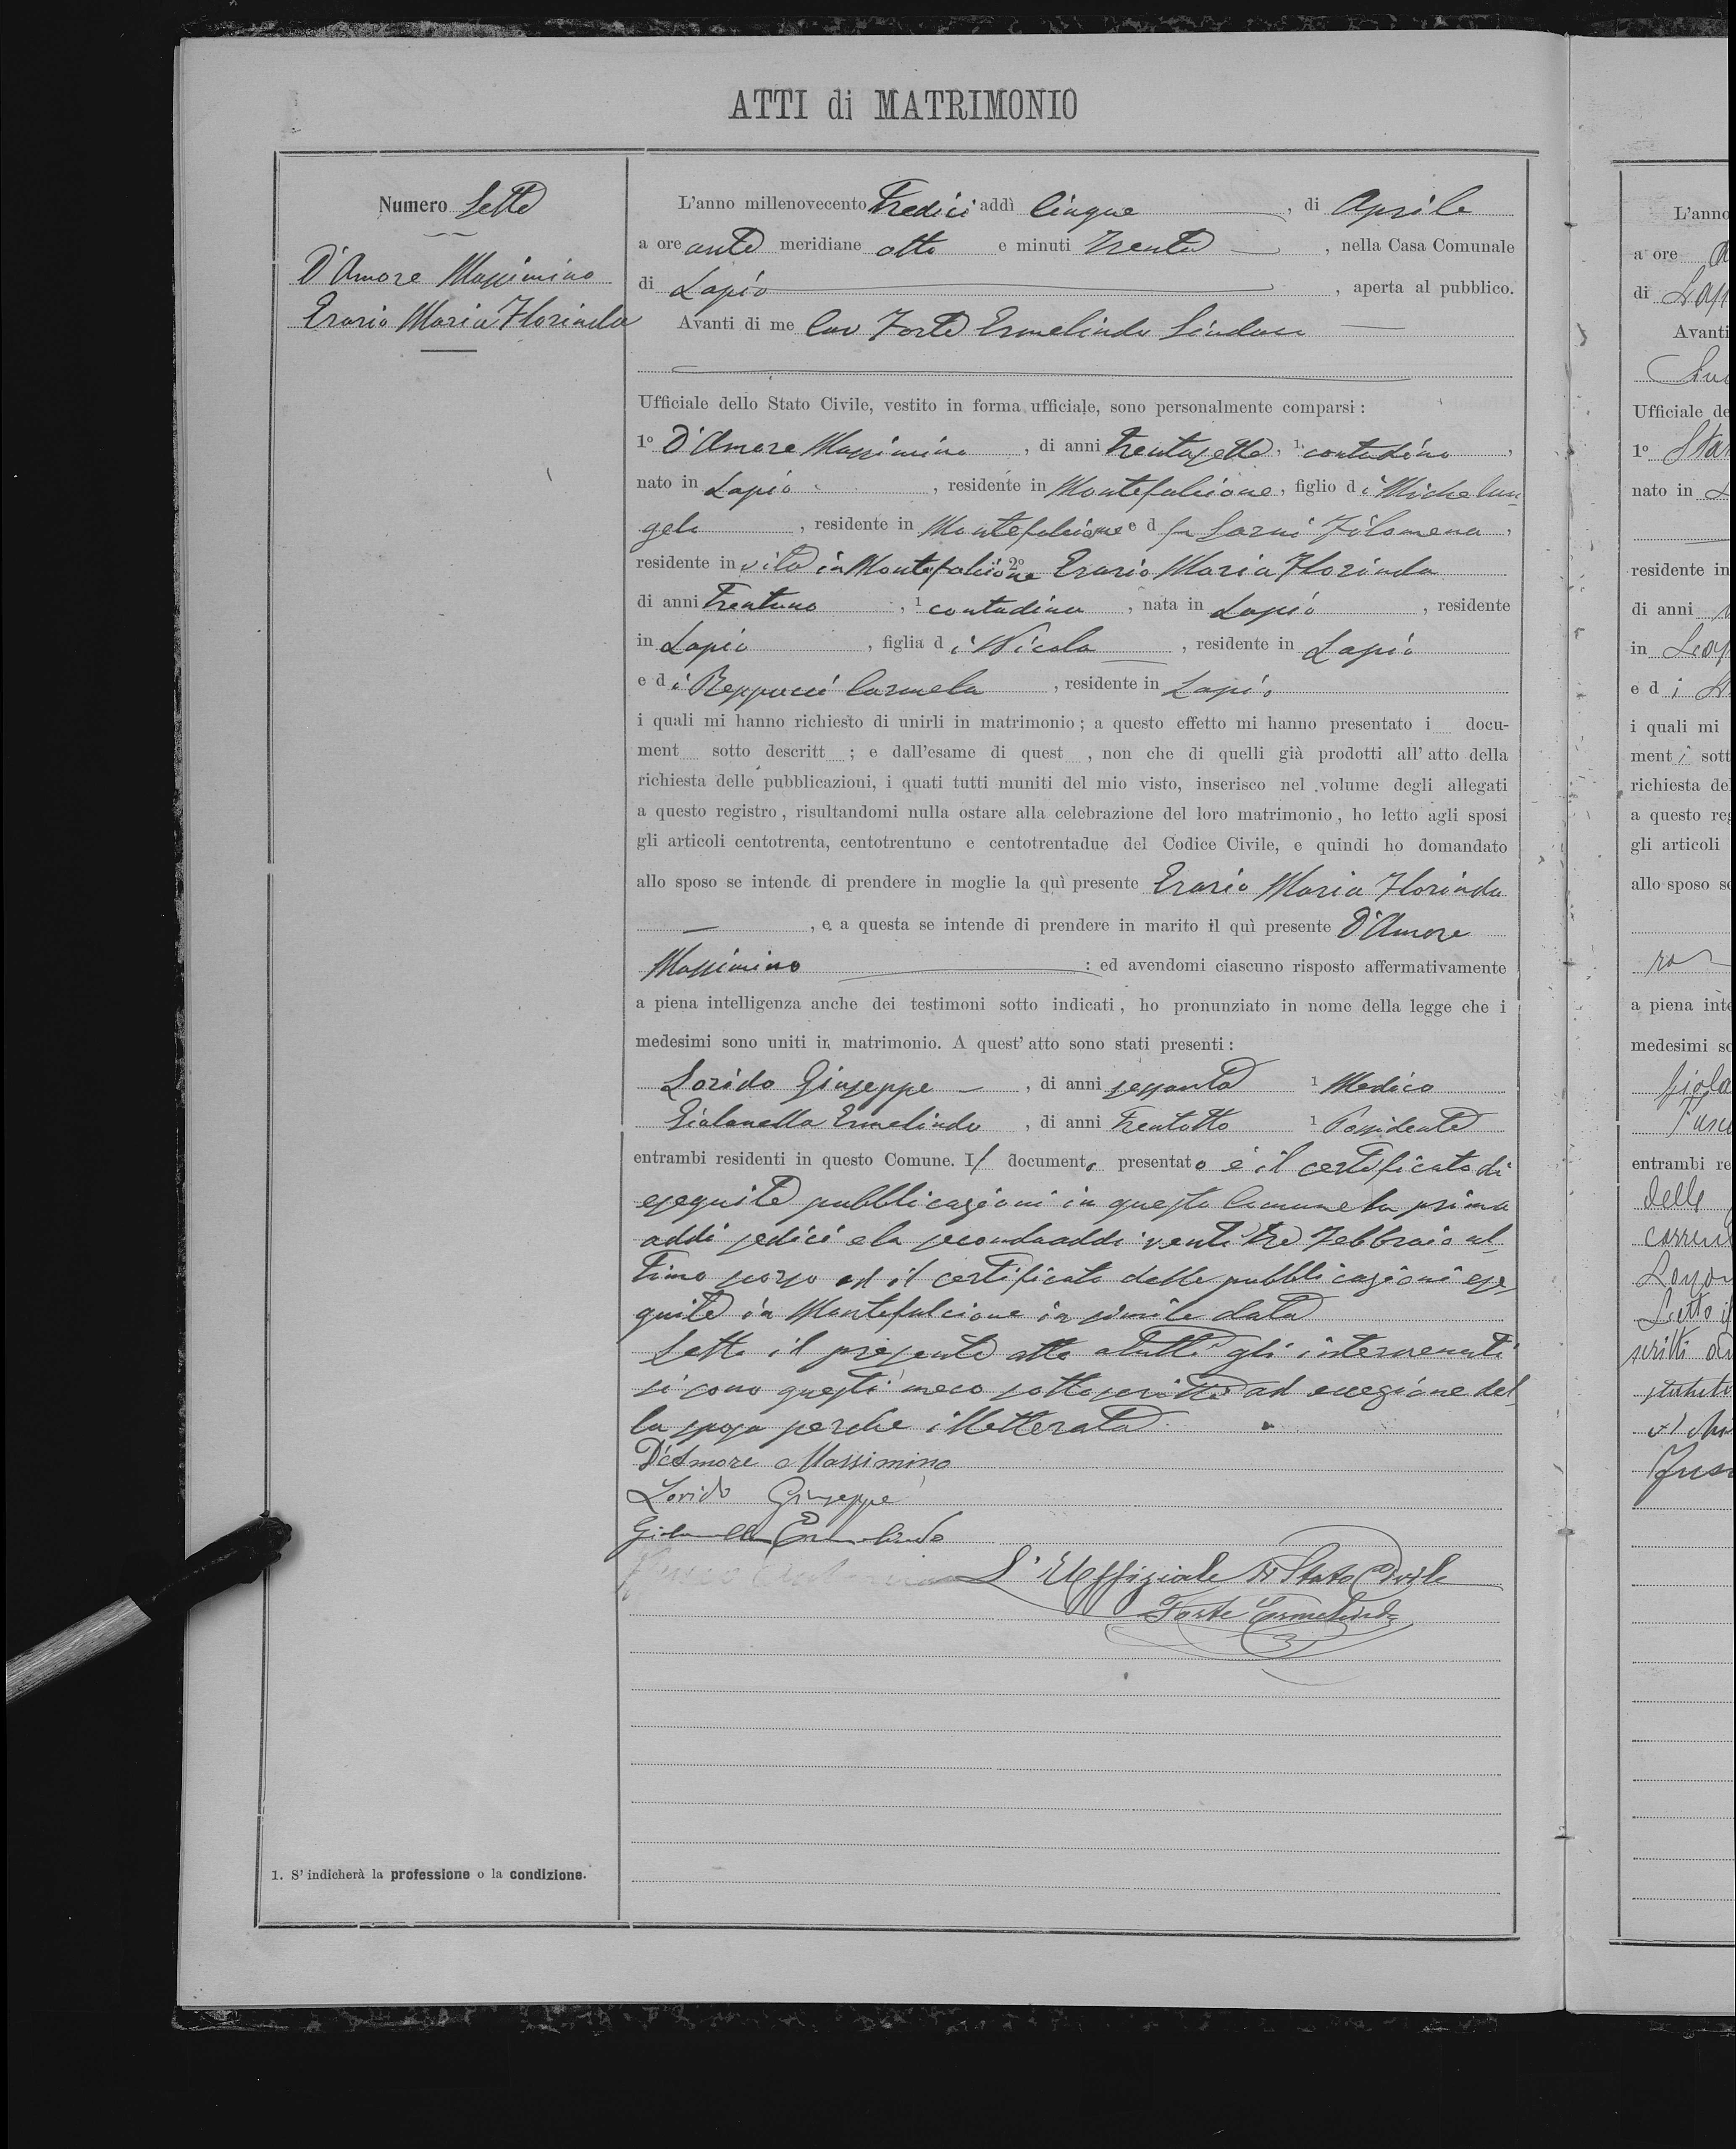 ATTI di MATRIMONIO
Numero Sette
D'Amore Massimino
Erario Maria Florinda
L'anno millenovecento Tredici addì Cinque, di Aprile
a ore ante meridiane otto e minuti trenta, nella Casa Comunale
di Lapio, aperta al pubblico.
Avanti di me Cav Forte Ermelindo Sindaco
Ufficiale dello Stato Civile, vestito in forma ufficiale, sono personalmente comparsi:
1º D'Amore Massimino, di anni trentasette, 1 contadino,
nato in Lapio, residente in Montefalcione, figlio di Michelan-
gelo, residente in Montefalcione e d fu Sarni Filomena,
residente in vita in Montefalcione 2º Erario Maria Florinda
di anni Trentuno, 1 contadina, nata in Lapio, residente
in Lapio, figlia di Nicola, residente in Lapio
e di Reppucci Carmela, residente in Lapio
i quali mi hanno richiesto di unirli in matrimonio; a questo effetto mi hanno presentato i docu-
ment sotto descritt ; e dall'esame di quest , non che di quelli già prodotti all'atto della
richiesta delle pubblicazioni, i quati tutti muniti del mio visto, inserisco nel volume degli allegati
a questo registro, risultandomi nulla ostare alla celebrazione del loro matrimonio, ho letto agli sposi
gli articoli centotrenta, centotrentuno e centotrentadue del Codice Civile, e quindi ho domandato
allo sposo se intende di prendere in moglie la quì presente Erario Maria Florinda
, e a questa se intende di prendere in marito il quì presente D'Amore
Massimino : ed avendomi ciascuno risposto affermativamente
a piena intelligenza anche dei testimoni sotto indicati, ho pronunziato in nome della legge che i
medesimi sono uniti in matrimonio. A quest'atto sono stati presenti:
Lorido Giuseppe, di anni sessanta 1 Medico
Giolanella Ermelindo, di anni Trentotto 1 Possidente
entrambi residenti in questo Comune. Il documento presentato è il certificato di
eseguite pubblicazioni in questo Comune la prima
addi sedici e la seconda addi venti tre Febbraio ul-
timo scorso ed il certificato delle pubblicazioni ese-
guite in Montefalcione in simile data
Letto il presente atto a tutti gli intervenuti
si sono questi meco sottoscritti ad eccezione del-
la sposa perche illetterata
D'Amore Massimino
Lorido Giuseppe
Giolanella Ermelindo
L'Uffiziale di Stato Civile
Forte Ermelindo
1. S'indicherà la professione o la condizione.
L'anno
a ore
di Lap
Avanti
Ufficiale de
1º
nato in
residente in
di anni
in Lap
e di
i quali mi
menti sott
richiesta de
a questo reg
gli articoli
allo sposo se
a piena inte
medesimi so
entrambi re
delle
Letto